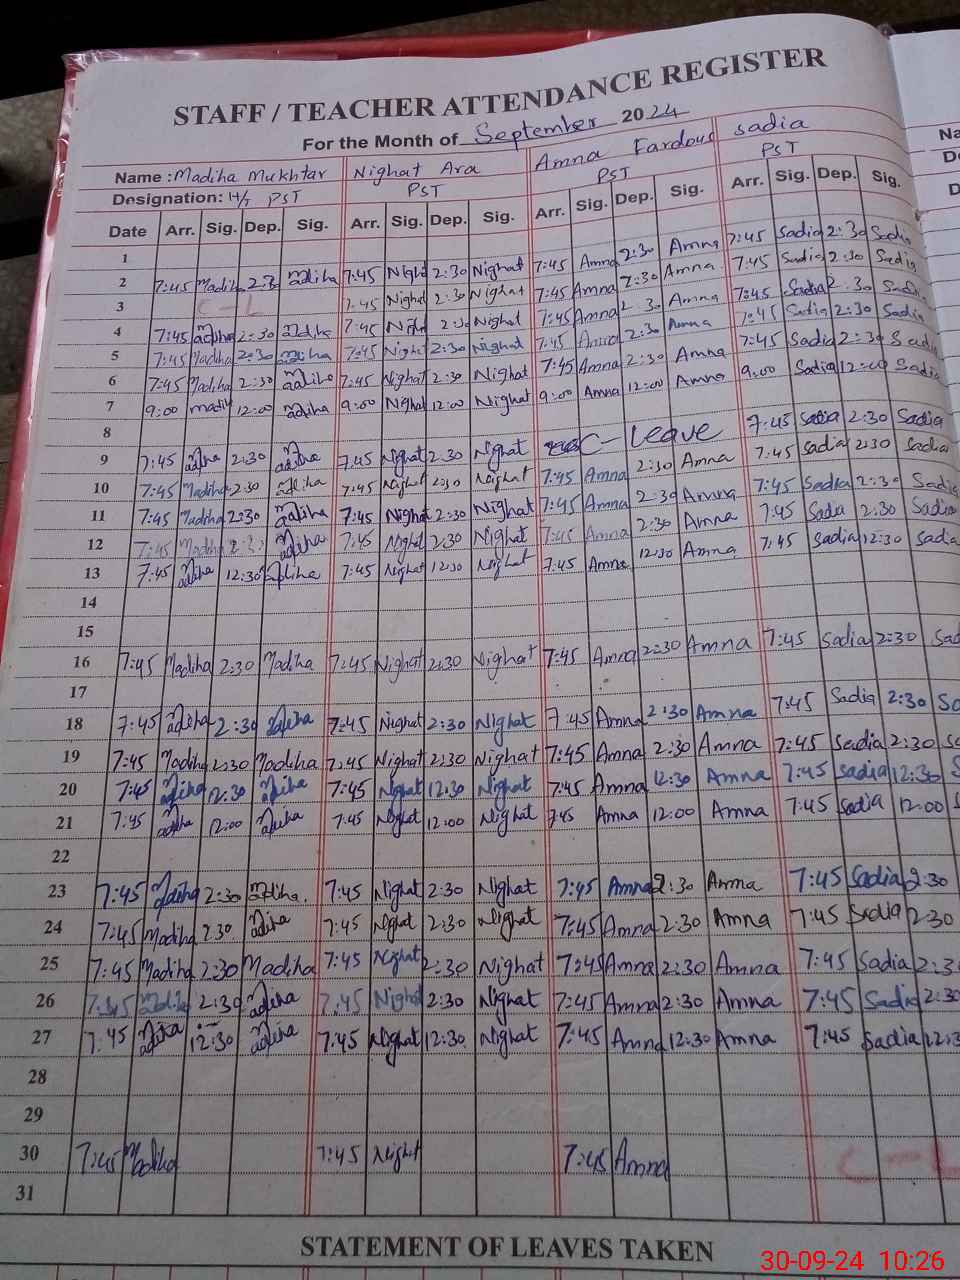 STAFF / TEACHER ATTENDANCE REGISTER
For the Month of September 2024
Name : Madiha Mukhtar Nighat Ara Amna Fardous Sadia
Designation: H/T PST PST PST PST
Date Arr. Sig. Dep. Sig. Arr. Sig. Dep. Sig. Arr. Sig. Dep. Sig. Arr. Sig. Dep. Sig.
1
2 7:45 Madiha 2:30 Madiha 7:45 Nighat 2:30 Nighat 7:45 Amna 2:30 Amna 7:45 Sadia 2:30 Sadia
3 C-L 7:45 Nighat 2:30 Nighat 7:45 Amna 2:30 Amna 7:45 Sadia 2:30 Sadia
4 7:45 Madiha 2:30 Madiha 7:45 Nighat 2:30 Nighat 7:45 Amna 2:30 Amna 7:45 Sadia 2:30 Sadia
5 7:45 Madiha 2:30 Madiha 7:45 Nighat 2:30 Nighat 7:45 Amna 2:30 Amna 7:45 Sadia 2:30 Sadia
6 7:45 Madiha 2:30 Madiha 7:45 Nighat 2:30 Nighat 7:45 Amna 2:30 Amna 7:45 Sadia 2:30 Sadia
7 9:00 Madiha 12:00 Madiha 9:00 Nighat 12:00 Nighat 9:00 Amna 12:00 Amna 9:00 Sadia 12:00 Sadia
8
9 7:45 Madiha 2:30 Madiha 7:45 Nighat 2:30 Nighat C-Leave 7:45 Sadia 2:30 Sadia
10 7:45 Madiha 2:30 Madiha 7:45 Nighat 2:30 Nighat 7:45 Amna 2:30 Amna 7:45 Sadia 2:30 Sadia
11 7:45 Madiha 2:30 Madiha 7:45 Nighat 2:30 Nighat 7:45 Amna 2:30 Amna 7:45 Sadia 2:30 Sadia
12 7:45 Madiha 2:30 Madiha 7:45 Nighat 2:30 Nighat 7:45 Amna 2:30 Amna 7:45 Sadia 2:30 Sadia
13 7:45 Madiha 12:30 Madiha 7:45 Nighat 12:30 Nighat 7:45 Amna 12:30 Amna 7:45 Sadia 12:30 Sadia
14
15
16 7:45 Madiha 2:30 Madiha 7:45 Nighat 2:30 Nighat 7:45 Amna 2:30 Amna 7:45 Sadia 2:30 Sad
17
18 7:45 Madiha 2:30 Madiha 7:45 Nighat 2:30 Nighat 7:45 Amna 2:30 Amna 7:45 Sadia 2:30 Sa
19 7:45 Madiha 2:30 Madiha 7:45 Nighat 2:30 Nighat 7:45 Amna 2:30 Amna 7:45 Sadia 2:30 Sa
20 7:45 Madiha 12:30 Madiha 7:45 Nighat 12:30 Nighat 7:45 Amna 12:30 Amna 7:45 Sadia 12:30 S
21 7:45 Madiha 12:00 Madiha 7:45 Nighat 12:00 Nighat 7:45 Amna 12:00 Amna 7:45 Sadia 12:00 S
22
23 7:45 Madiha 2:30 Madiha. 7:45 Nighat 2:30 Nighat 7:45 Amna 2:30 Amna 7:45 Sadia 2:30
24 7:45 Madiha 2:30 Madiha 7:45 Nighat 2:30 Nighat 7:45 Amna 2:30 Amna 7:45 Sadia 2:30
25 7:45 Madiha 2:30 Madiha 7:45 Nighat 2:30 Nighat 7:45 Amna 2:30 Amna 7:45 Sadia 2:3
26 7:45 Madiha 2:30 Madiha 7:45 Nighat 2:30 Nighat 7:45 Amna 2:30 Amna 7:45 Sadia 2:30
27 7:45 Madiha 12:30 Madiha 7:45 Nighat 12:30 Nighat 7:45 Amna 12:30 Amna 7:45 Sadia 12:3
28
29
30 7:45 Madiha 7:45 Nighat 7:45 Amna C-L
31
STATEMENT OF LEAVES TAKEN
30-09-24 10:26